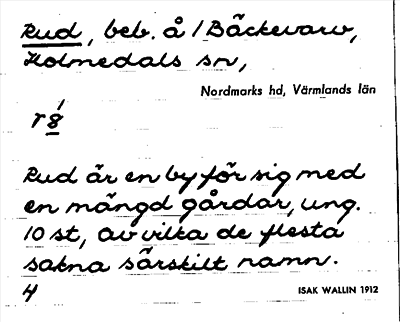 Rud, beb. å 1 Bäckevarv,
Holmedals sn,
Nordmarks hd, Värmlands län
Rud är en by för sig med
en mängd gårdar, ung.
10 st, av vilka de flesta
sakna särskilt namn.
4
ISAK WALLIN 1912